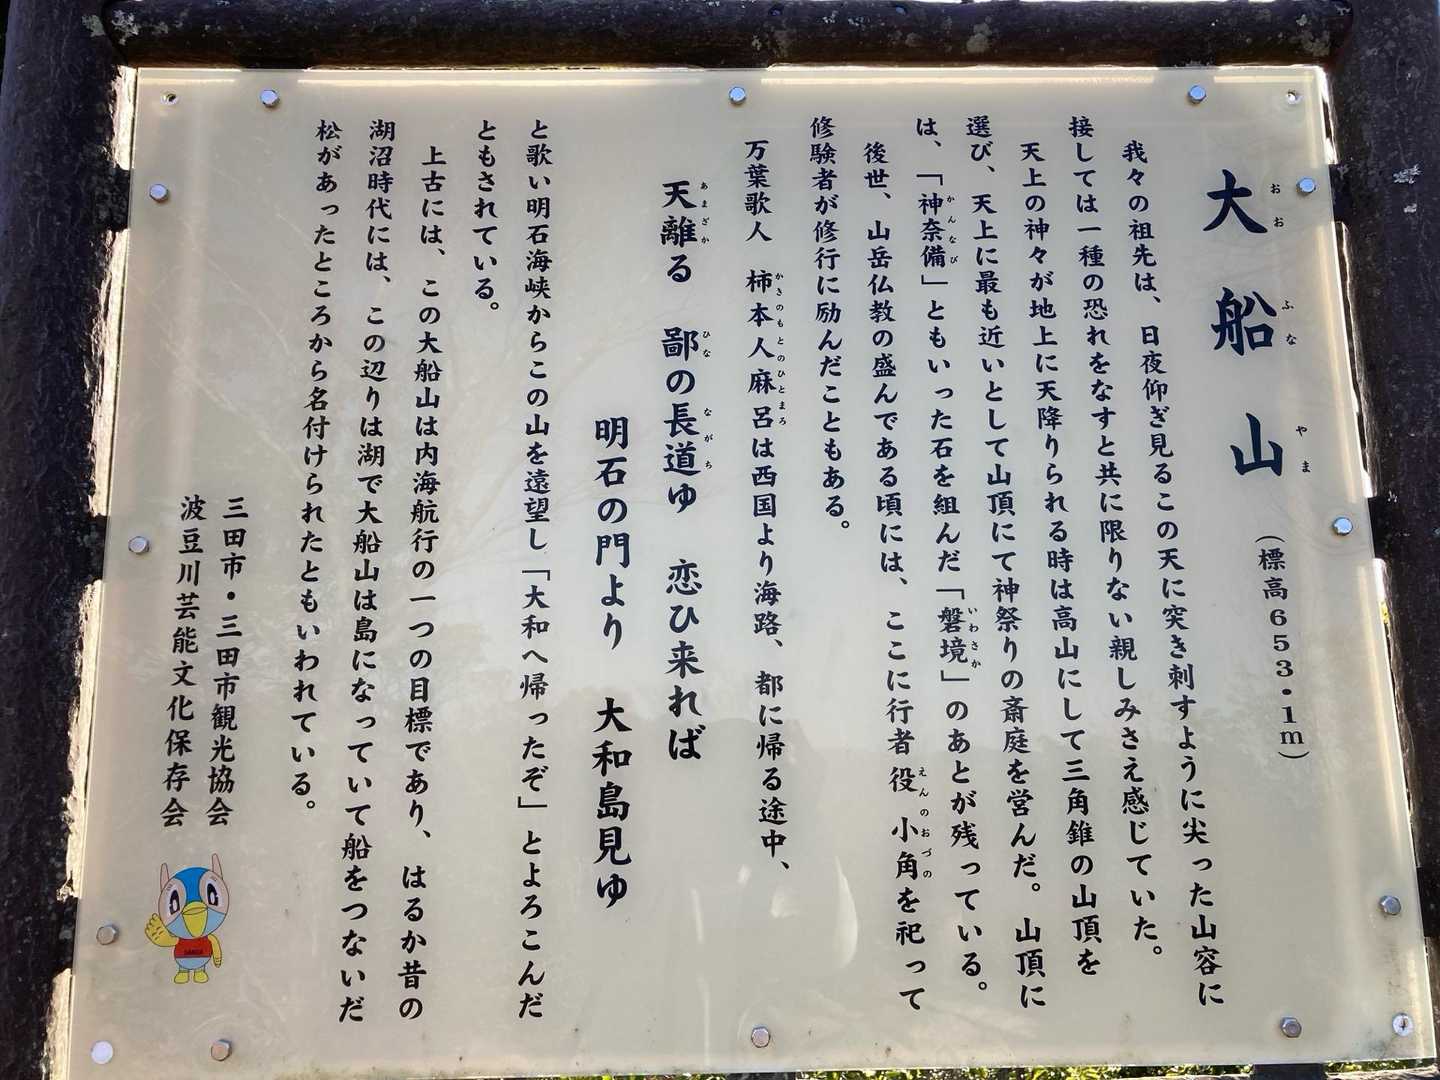 大船山（標高６５３・１ｍ）
おおふなやま
我々の祖先は、日夜仰ぎ見るこの天に突き刺すように尖った山容に
接しては一種の恐れをなすと共に限りない親しみさえ感じていた。
天上の神々が地上に天降りられる時は高山にして三角錐の山頂を
選び、天上に最も近いとして山頂にて神祭りの斎庭を営んだ。山頂に
は、「神奈備」ともいった石を組んだ「磐境」のあとが残っている。
かんなび
いわさか
後世、山岳仏教の盛んである頃には、ここに行者役小角を祀って
えんのおづの
修験者が修行に励んだこともある。
万葉歌人　柿本人麻呂は西国より海路、都に帰る途中、
かきのもとのひとまろ
天離る　鄙の長道ゆ　恋ひ来れば
あまざか
ひな
ながち
明石の門より　大和島見ゆ
と歌い明石海峡からこの山を遠望し「大和へ帰ったぞ」とよろこんだ
ともされている。
上古には、この大船山は内海航行の一つの目標であり、はるか昔の
湖沼時代には、この辺りは湖で大船山は島になっていて船をつないだ
松があったところから名付けられたともいわれている。
三田市・三田市観光協会
波豆川芸能文化保存会
SANDA